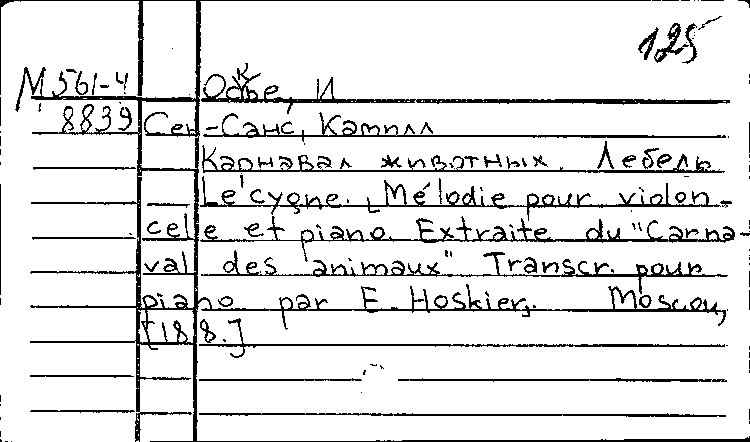 125
М 561-4
8839
Сен-Санс, Камилл
Карнавал животных. Лебедь
Le cygne. [Mélodie pour violon-
celle et piano. Extraite du "Carna-
val des animaux" Transcr. pour
piano par E. Hoskier,. Moscou,
[188.]